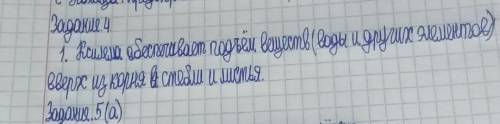 Задание 4
1. Ксилема обеспечивает подъём веществ (воды и других элементов)
вверх из корня в стебли и листья.
Задание. 5(а)